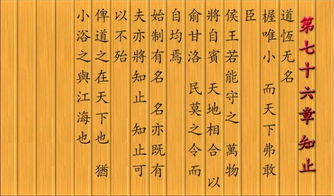 第七十六章 知止
道恆无名
樸唯小 而天下弗敢
臣
侯王若能守之 萬物
將自賓 天地相合 以
俞甘洛 民莫之令而
自均焉
始制有名 名亦既有
夫亦將知止 知止可
以不殆
俾道之在天下也 猶
小浴之與江海也